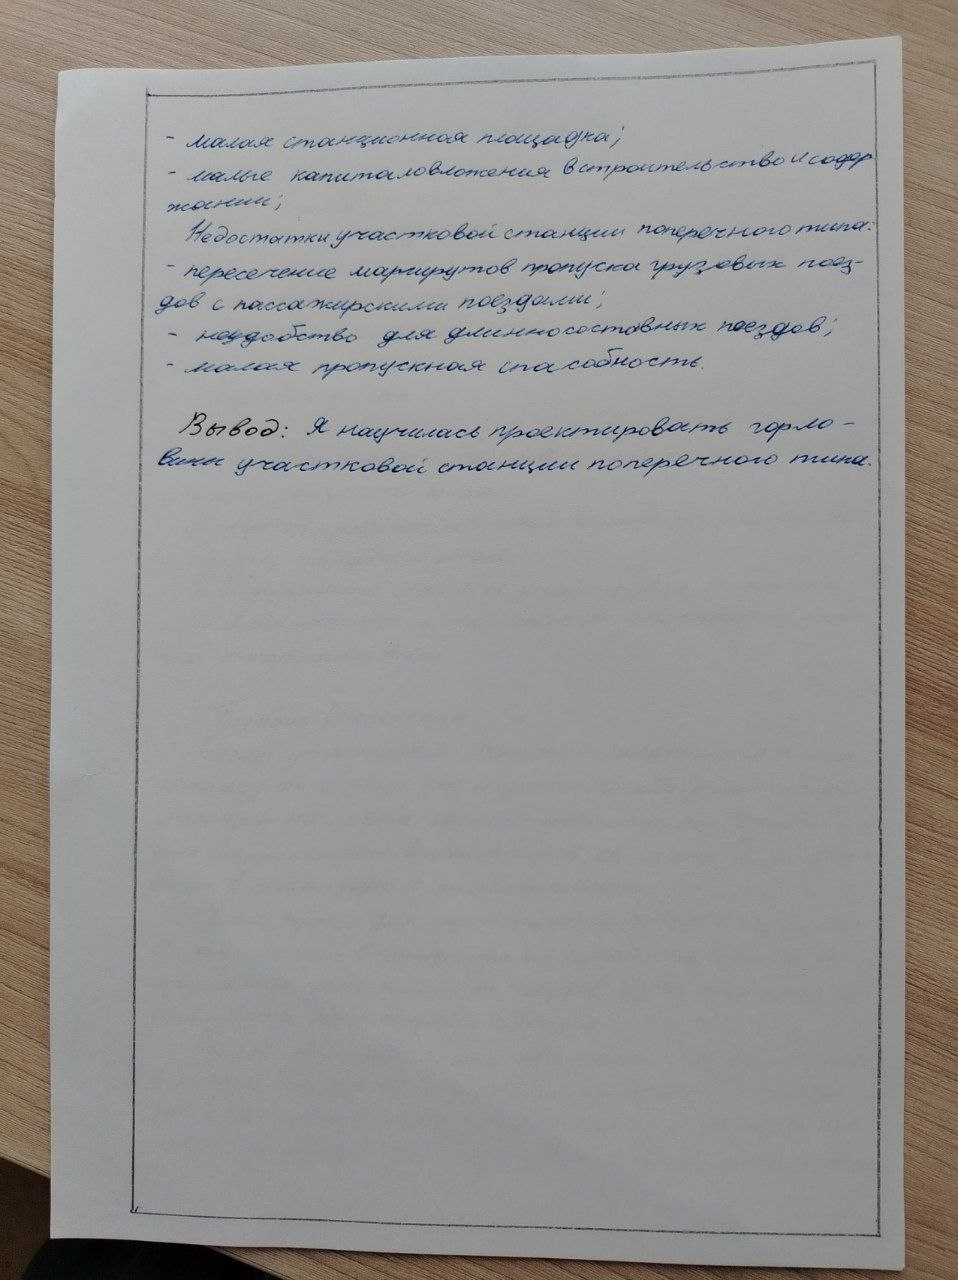 - малая станционная площадка;
- малые капиталовложения в строительство и содер
жании;
Недостатки участковой станции поперечного типа:
- пересечение маршрутов пропуска грузовых поез-
дов с пассажирскими поездами;
- неудобство для длинносоставных поездов;
- малая пропускная способность.
Вывод: Я научилась проектировать горло-
вины участковой станции поперечного типа.